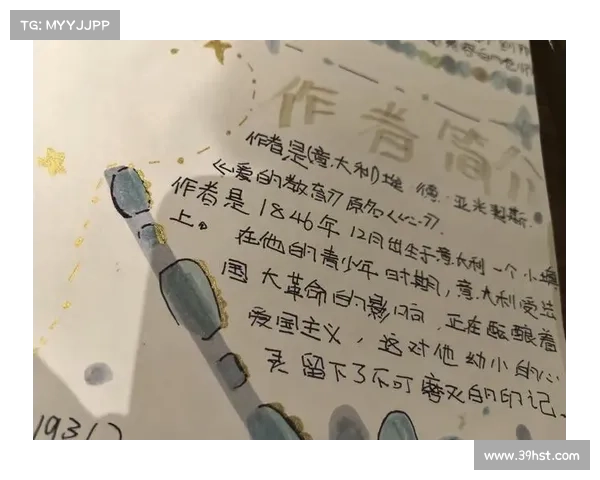 TG: MYYJJPP
作者简介
作者是(意大利)埃 德 亚米契斯.
《爱的教育》原名《心》.
作者是1846年12月出生于意大利一个小
上。在他的青少年时期,意大利受法
国大革命的影响,正在酝酿着
爱国主义,这对他幼小的心
灵留下了不可磨灭的印记.
1931)
www.39hst.com